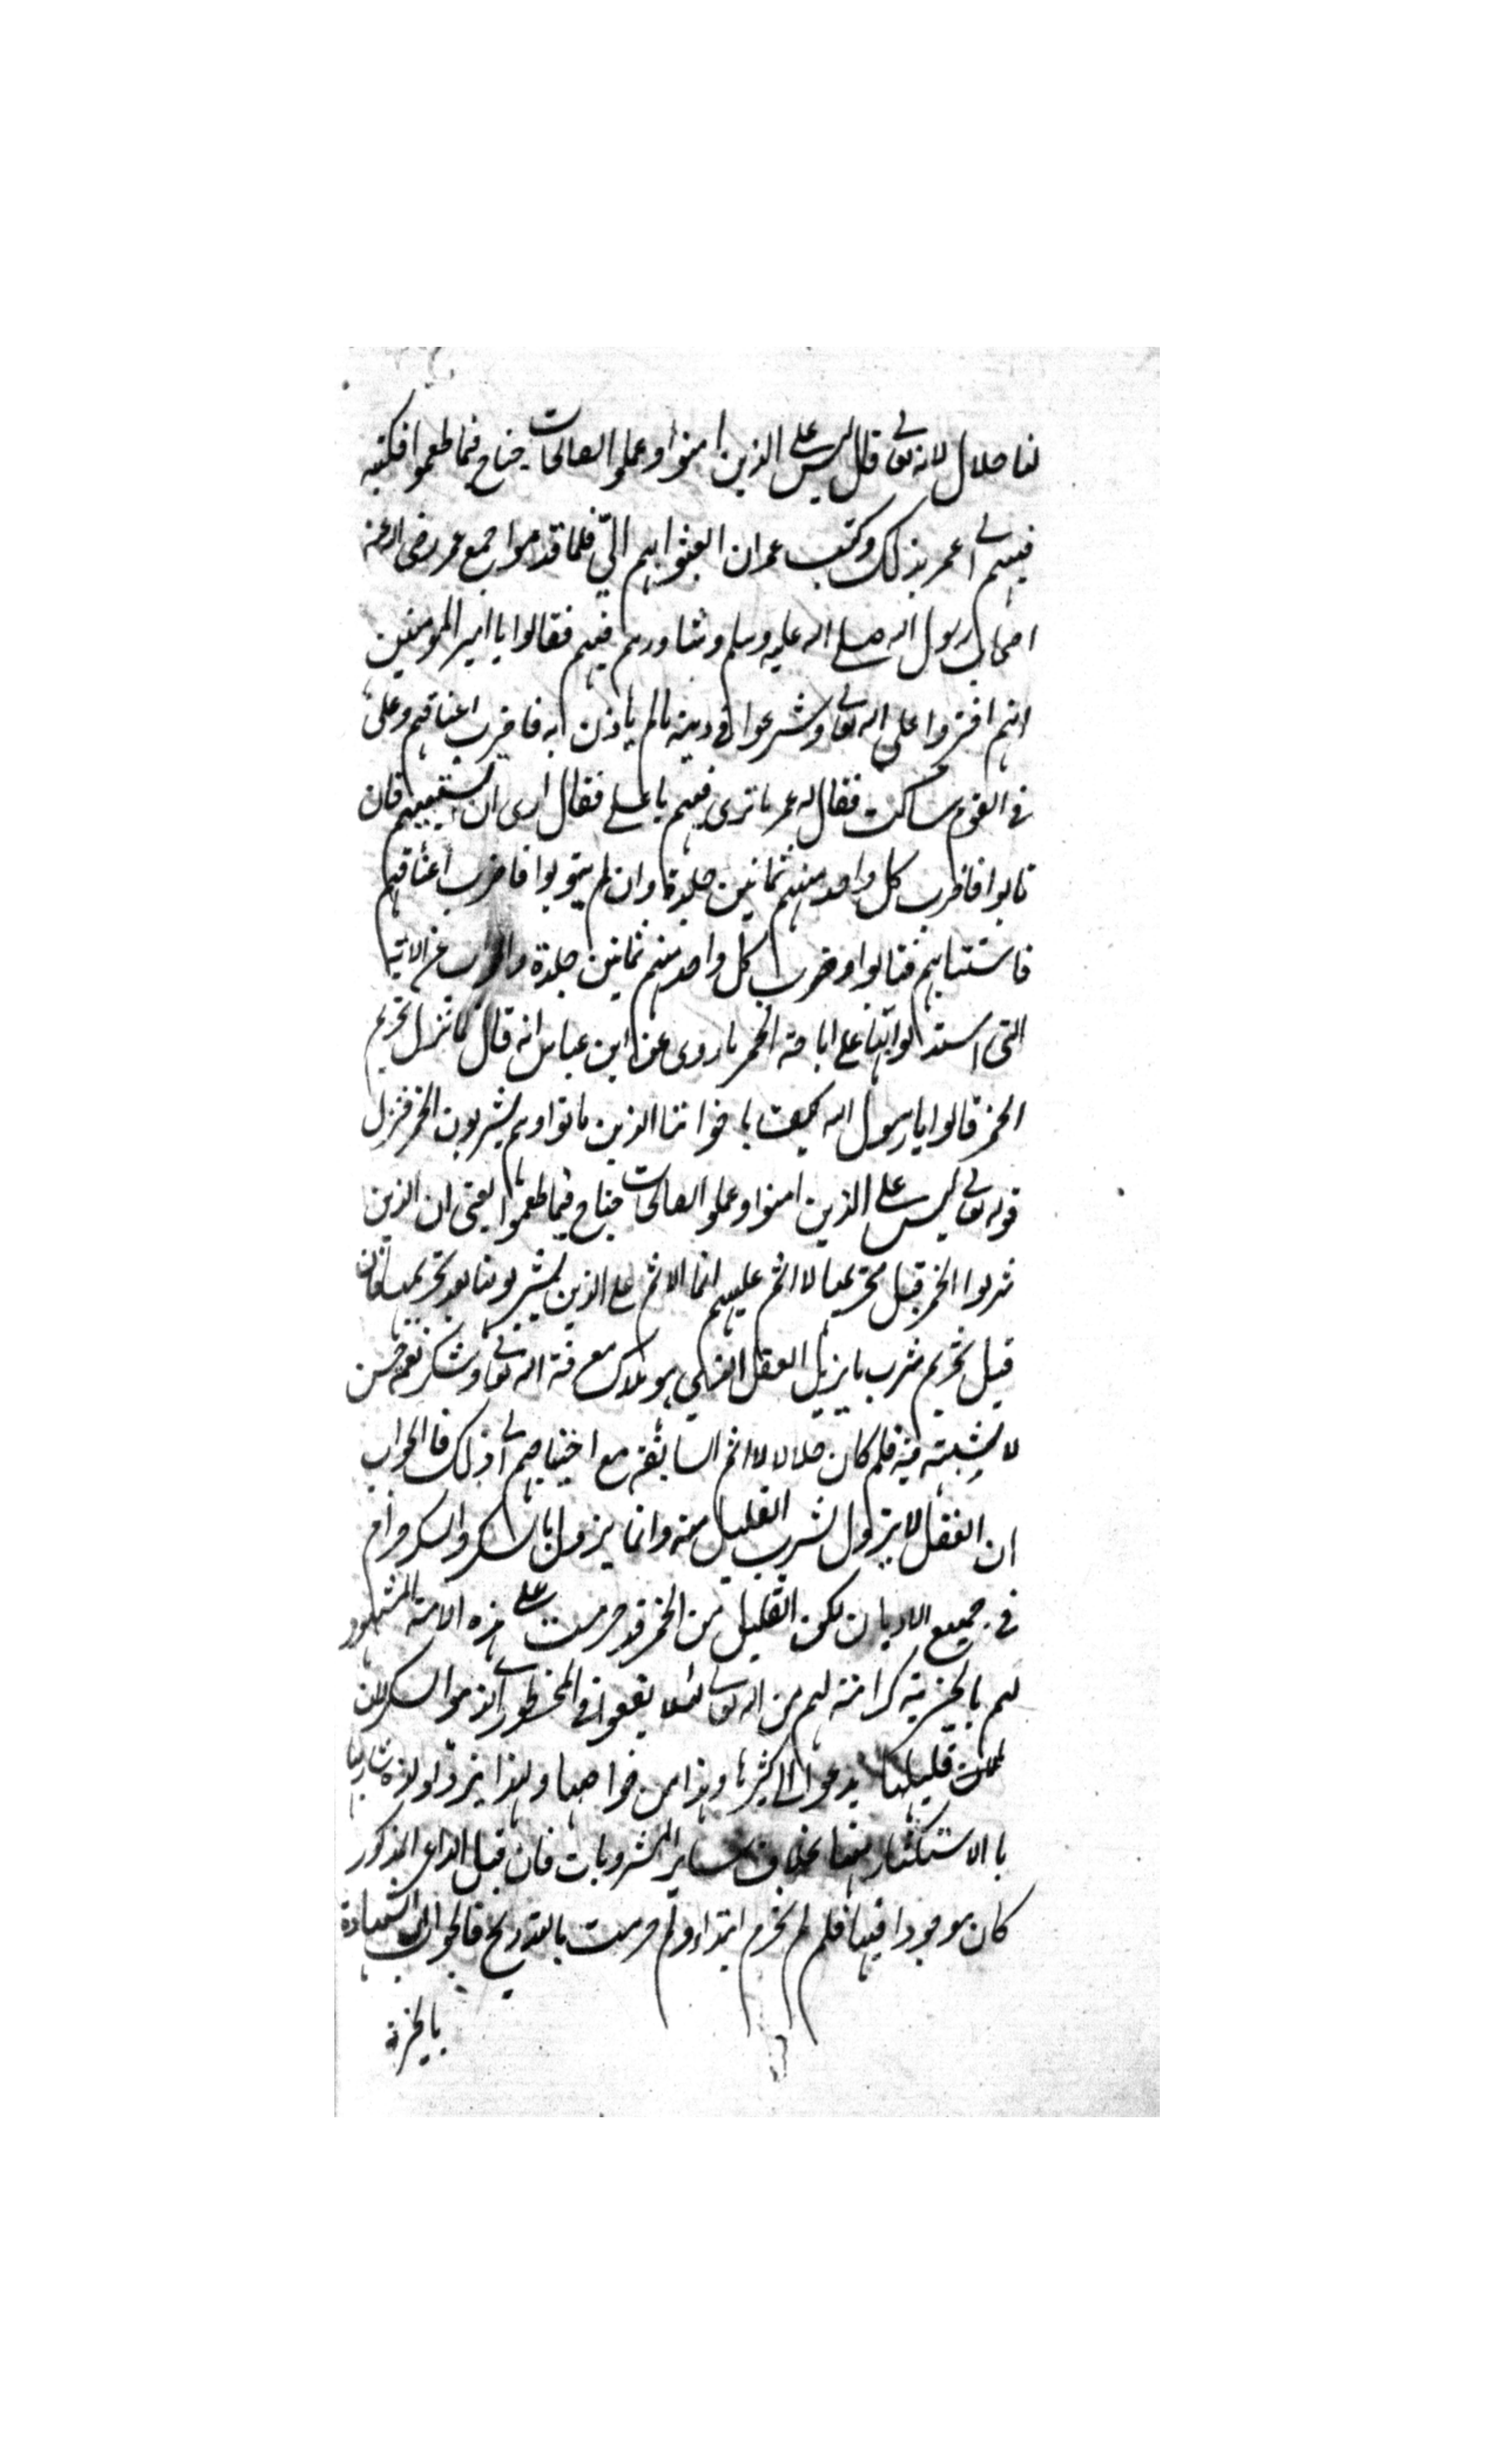 لنا حلال لانه تعالى قال ليس على الذين امنوا وعملوا الصالحات جناح فيما طعموا فكتبه
فيهم الى عمر بذلك وكتب عمر ان ابعثوا بهم الىّ فلما قدموا جمع عمر رضى الله عنه
اصحاب رسول الله صلى الله عليه وسلم وشاورهم فيهم فقالوا يا امير المومنين
انهم افتروا على الله تعالى وشرعوا فى دينه مالم ياذن به فاضرب اعناقهم وعلى
فى القوم ساكت فقال له عمر ما ترى فيهم يا على فقال ارى ان تستتيبهم فان
تابوا فاضرب كل واحد منهم ثمانين جلدة وان لم يتوبوا فاضرب اعناقهم
فاستتابهم فتابوا وضرب كل واحد منهم ثمانين جلدة والجواب عن الاية
التى استدلوا بها على اباحة الخمر ما روى عن ابن عباس انه قال لما نزل تحريم
الخمر قالوا يا رسول الله كيف باخواننا الذين ماتوا وهم يشربون الخمر فنزل
قوله تعالى ليس على الذين امنوا وعملوا الصالحات جناح فيما طعموا يعنى ان الذين
شربوا الخمر قبل تحريمها لا اثم عليهم انما الاثم على الذين يشربونها بعد تحريمها فان
قيل تحريم شرب ما يزيل العقل الذى هو ملاك معرفة الله تعالى وشكر نعمه حسن
لا يشبته فيه فلم كان حلالا للامم السابقة مع احتياجهم الى ذلك فالجواب
ان العقل لا يزول بشرب القليل منه وانما يزول بالسكر والسكر حرام
فى جميع الاديان لكن القليل من الخمر قد حرمت على هذه الامة المشهود
لهم بالخيرية كرامة لهم من الله تعالى لئلا يقعوا فى المحظور
قليلها يدعوا الى كثيرها وهذا من خواصها ولهذا يزداد لذة شاربها
بالاستكثار منها بخلاف ساير المشروبات فان قيل الداعى المذكور
كان موجودا فيها فلم لم تحرم ابتداء ولم حرمت بالتدريج فالجواب ان الشهادة
بالخيرية